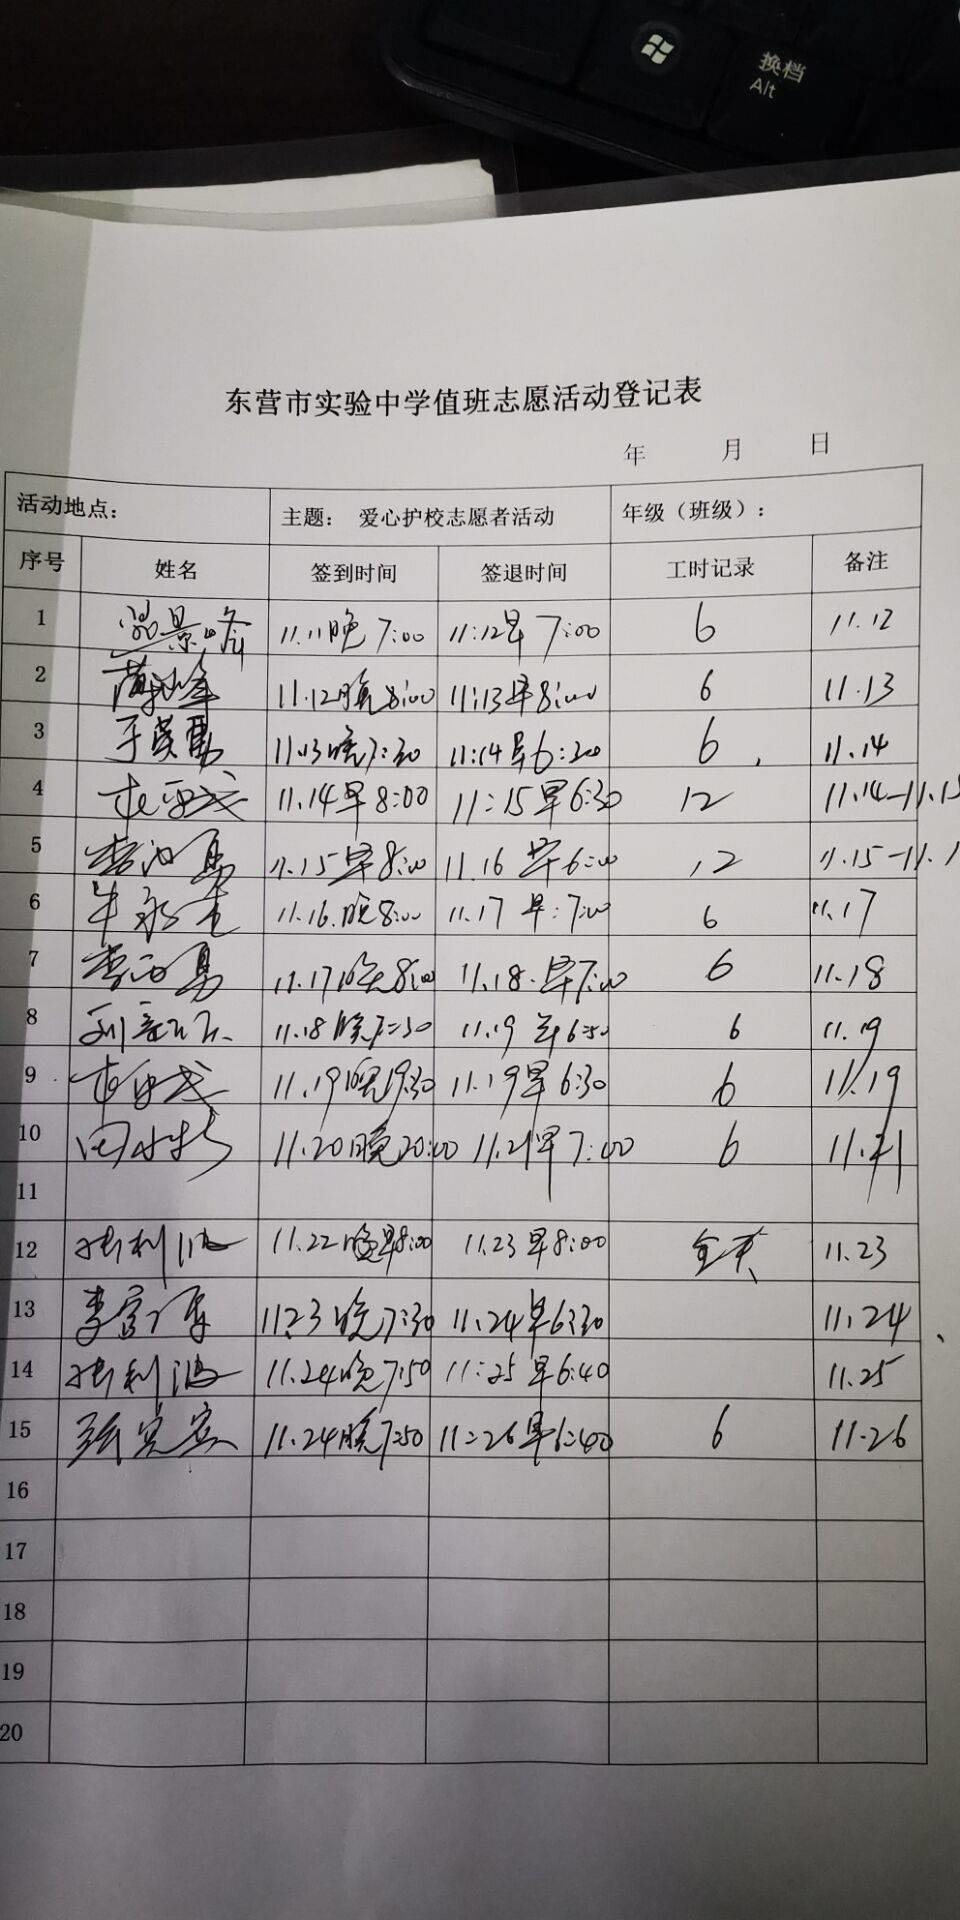 换档
Alt
东营市实验中学值班志愿活动登记表
年 月 日
活动地点： 主题： 爱心护校志愿者活动 年级（班级）：
序号 姓名 签到时间 签退时间 工时记录 备注
1 11.11晚7:00 11:12早7:00 6 11.12
2 11.12晚8:00 11:13早8:00 6 11.13
3 于英勇 11.13晚7:30 11:14早6:30 6 11.14
4 11.14早8:00 11:15早6:30 12 11.14-11.15
5 11.15早8:00 11.16早6:00 12 11.15-11.1
6 牛永 11.16.晚8:00 11.17早:7:00 6 11.17
7 11.17晚8:00 11.18.早7:00 6 11.18
8 刘 11.18晚7:30 11.19早6:50 6 11.19
9 11.19晚19:30 11.19早6:30 6 11.19
10 田 11.20晚20:00 11.21早7:00 6 11.21
11
12 张利波 11.22晚早8:00 11.23早8:00 全天 11.23
13 李富 11.23晚7:30 11.24早6:30 11.24
14 张利波 11.24晚7:50 11:25早6:40 11.25
15 张宾宾 11.24晚7:50 11:26早6:40 6 11.26
16
17
18
19
20